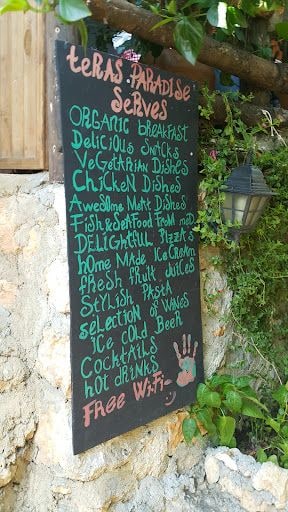 teRAS PARADISE
SeRVES
ORGANIC BReAKFAST
DeLICIOUS SNACKS
VeGeTARIAN DISHES
CHICKeN DISHES
AweSOMe MeAT DISHES
FISH&SeAFOOD FROM MeD.
DELIGHTFUL PIZZA'S
hOMe MADe ICeCReAM
FReSH FRUIT JUICeS
STYLISH PASTA
SELeCTION OF WINeS
ICe COLD BeeR
COCKTAILS
hOT DRINKS
FRee WiFi-